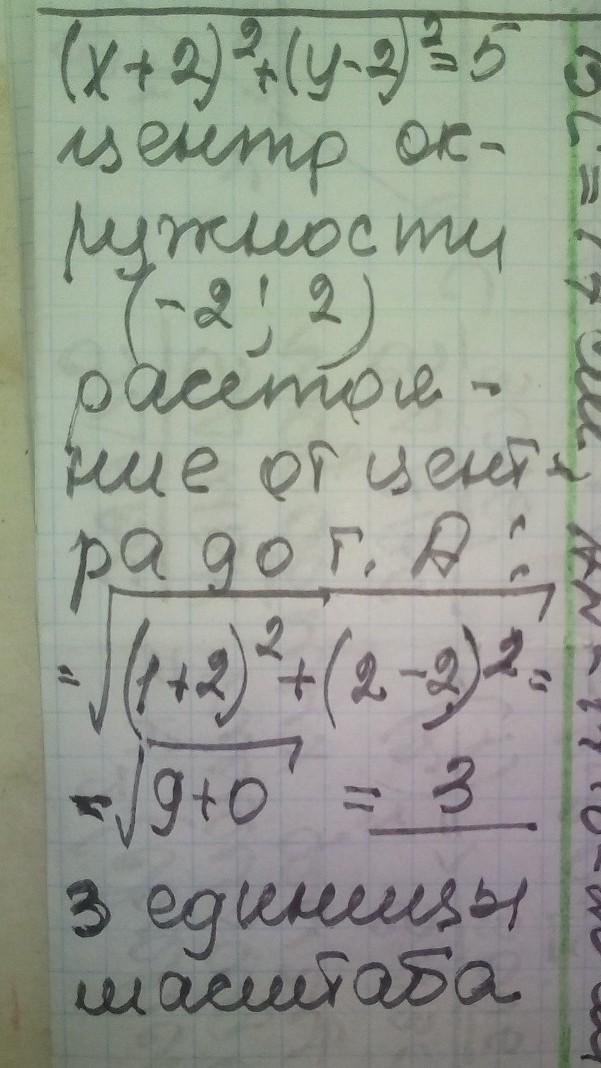 (x+2)²+(y-2)²=5
центр ок-
ружности
(-2; 2)
расстоя-
ние от цент-
ра до т. А:
=√(1+2)²+(2-2)²=
=√9+0 = 3
3 единицы
масштаба